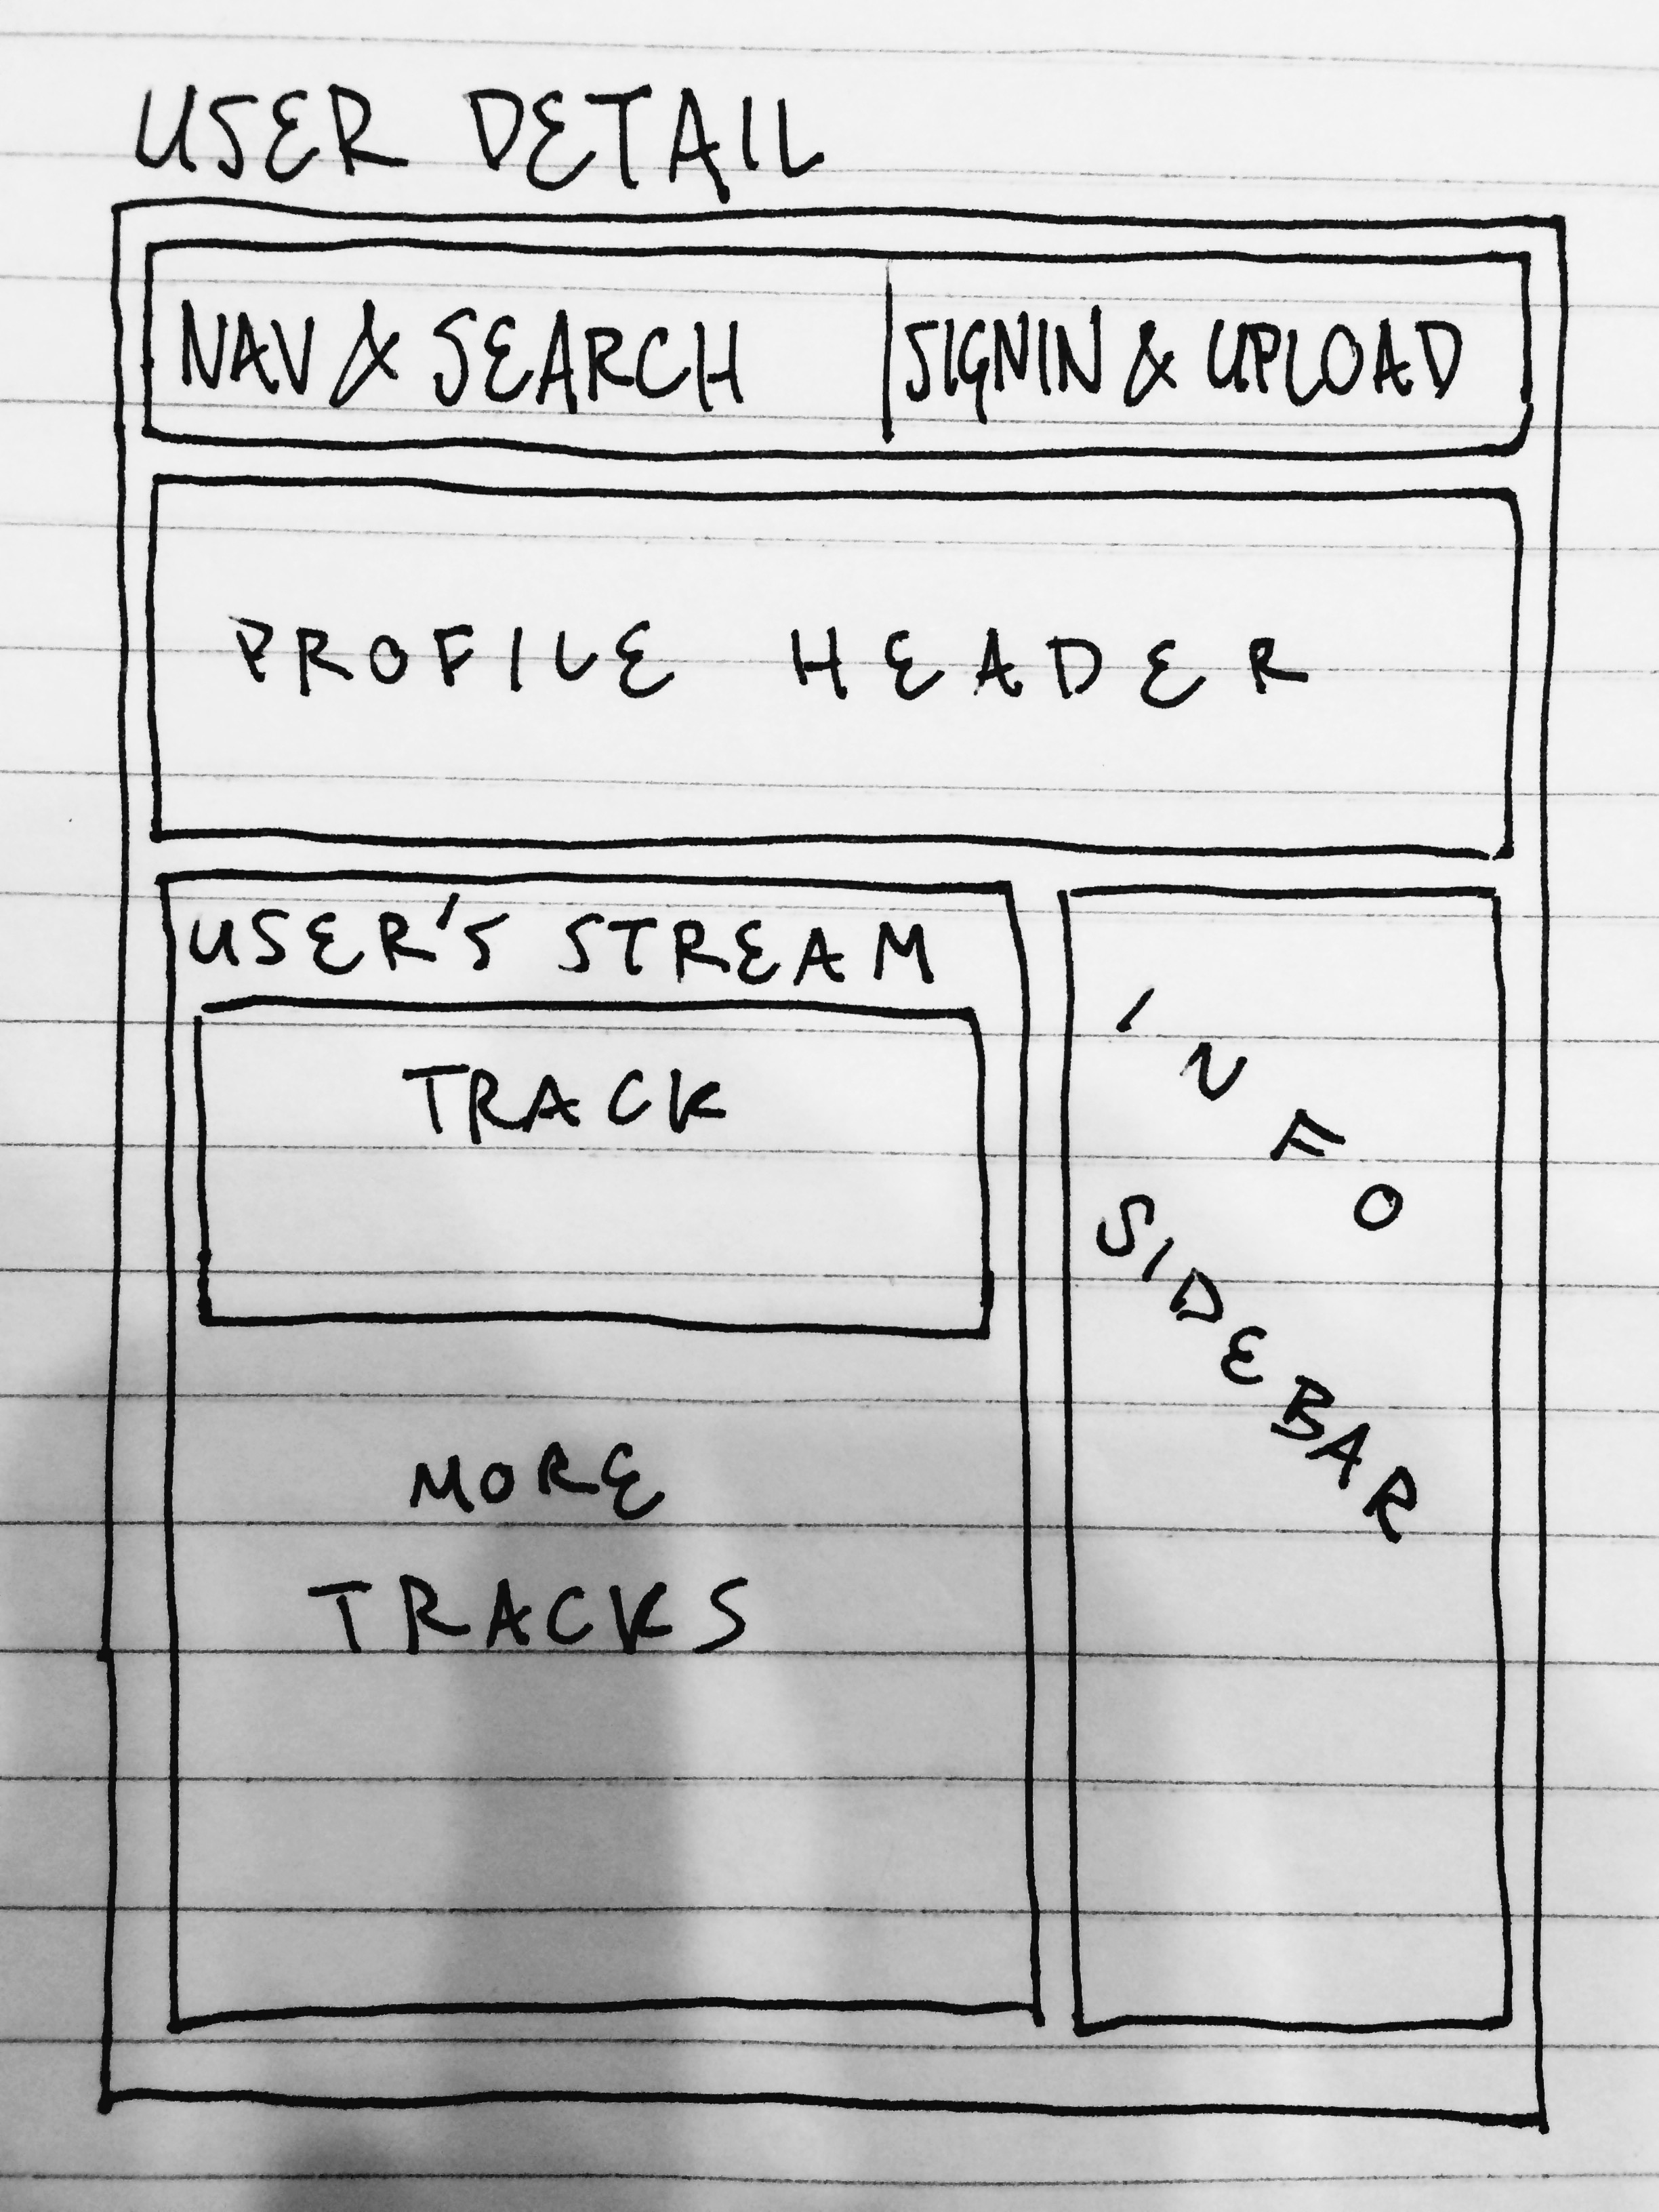 USER DETAIL
NAV & SEARCH
SIGNIN & UPLOAD
PROFILE HEADER
USER'S STREAM
TRACK
MORE
TRACKS
INFO
SIDEBAR